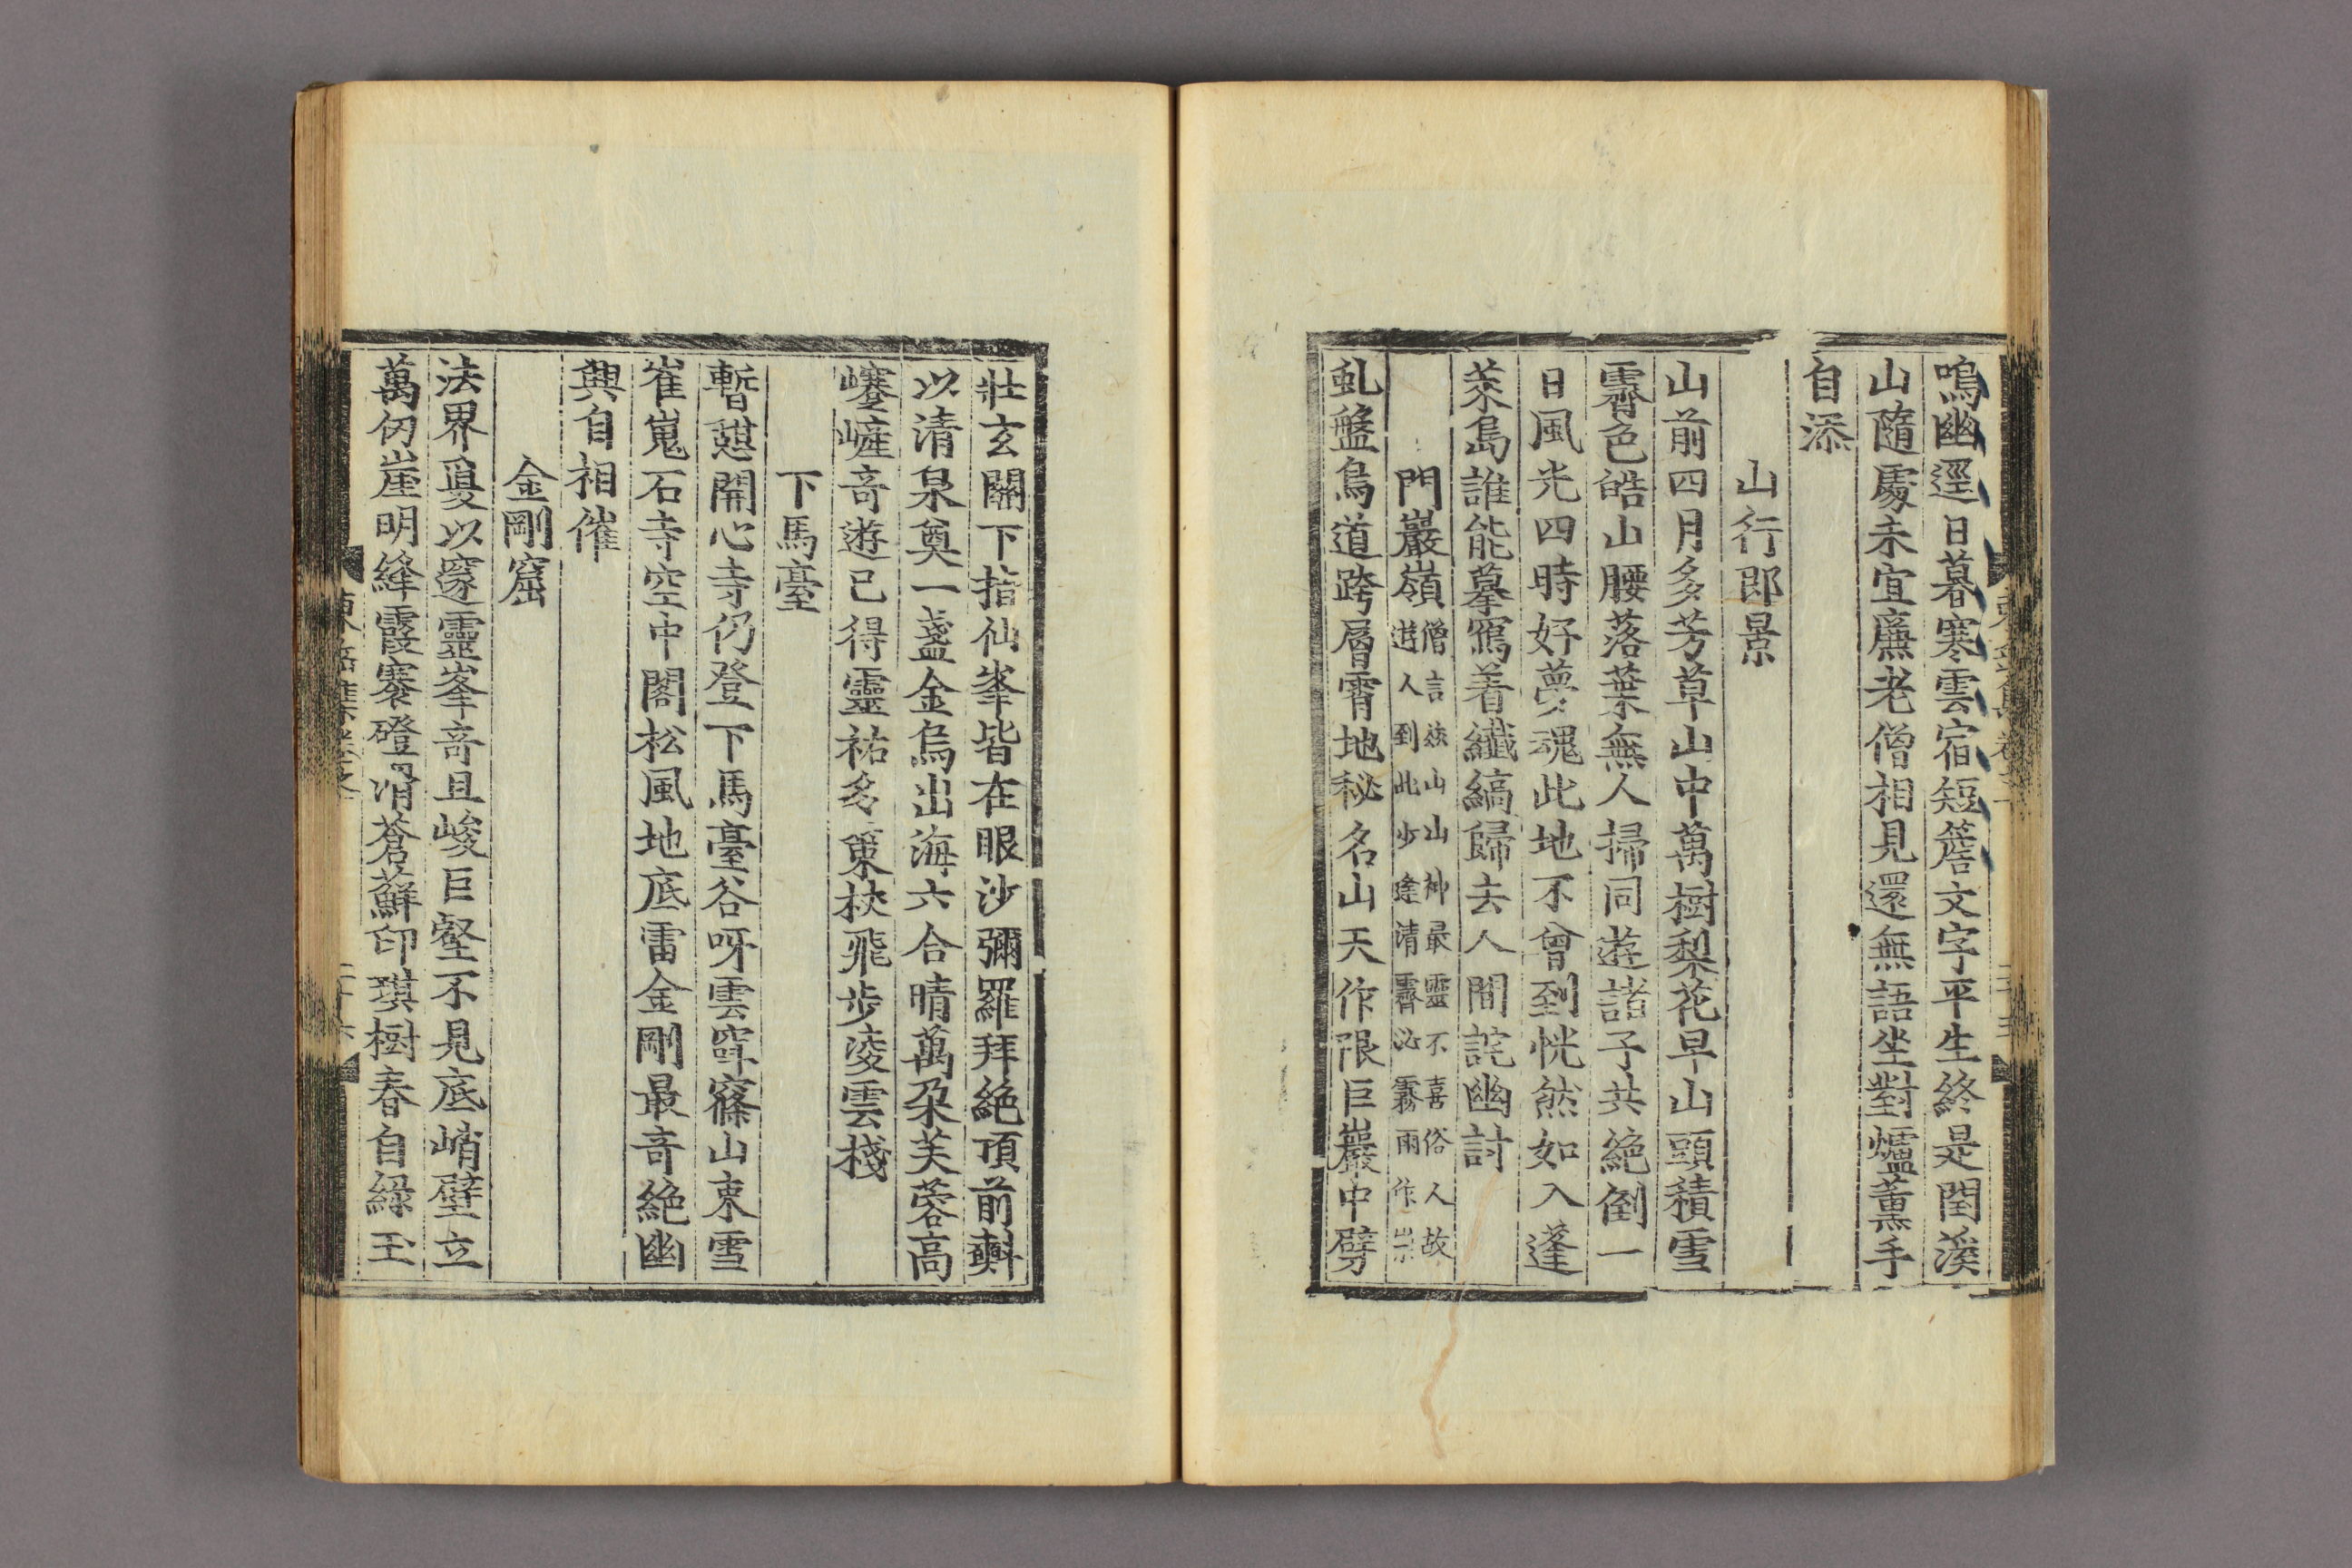 鳴幽逕日暮寒雲宿短簷文字平生終是閏溪
山隨處未宜廉老僧相見還無語坐對爐薰手
自添
山行即景
山前四月多芳草山中萬樹梨花早山頭積雪
霽色皓山腰落葉無人掃同遊諸子共絶倒一
日風光四時好夢魂此地不曾到恍然如入蓬
萊島誰能摹寫着纖縞歸去人間詫幽討
門巖嶺僧言玆山山神最靈不喜俗人故
遊人到此少逢清霽必霧雨作祟
虬盤鳥道跨層霄地秘名山天作限巨巖中劈
壯玄關下指仙峯皆在眼沙彌羅拜絶頂前㪺
以清泉奠一盞金烏出海六合晴萬朶芙蓉高
㠻㟴奇遊已得靈祐多策杖飛步凌雲棧
下馬臺
暫憇開心寺仍登下馬臺谷呀雲窂窱山束雪
崔嵬石寺空中閣松風地底雷金剛最奇絶幽
興自相催
金剛窟
法界夐以邃靈峯奇且峻巨壑不見底峭壁立
萬仞崖明絳霞褰磴滑蒼蘚印琪樹春自綠玉